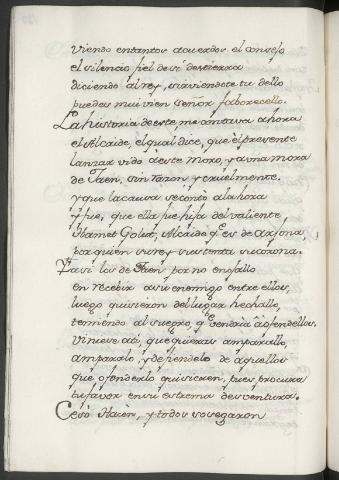 viendo entantos acuerdos el consejo
el silencio fiel de si destierra
diciendo al rey, si aviendote tu dello
puedes mui vien señor faborecello.
La historia de este, me contava ahora
el Alcaide, el qual dice, que el presente
lanzar vido a este Moro, y a una mora
de Jaen, sin razon, y cruelmente.
y que la causa secontò a la hora
y fue, que ella fue hija del valiente
Hamet Golut, Alcaide q. es de Arjona,
por quien vive y sustenta su corona.
Y asi los de Jaen por no enojallo
en recebir a su enemigo entre ellos,
luego quisieron del lugar hechallo,
temiendo al suegro, q vendria à ofendellos.
Vinose ati, que quieras amparallo,
amparalo, y defiendelo de aquellos
que ofenderlo quisieren, pues procura
tu favor en su estrema desventura.
Cesò Hacèn, y todos sosegaron